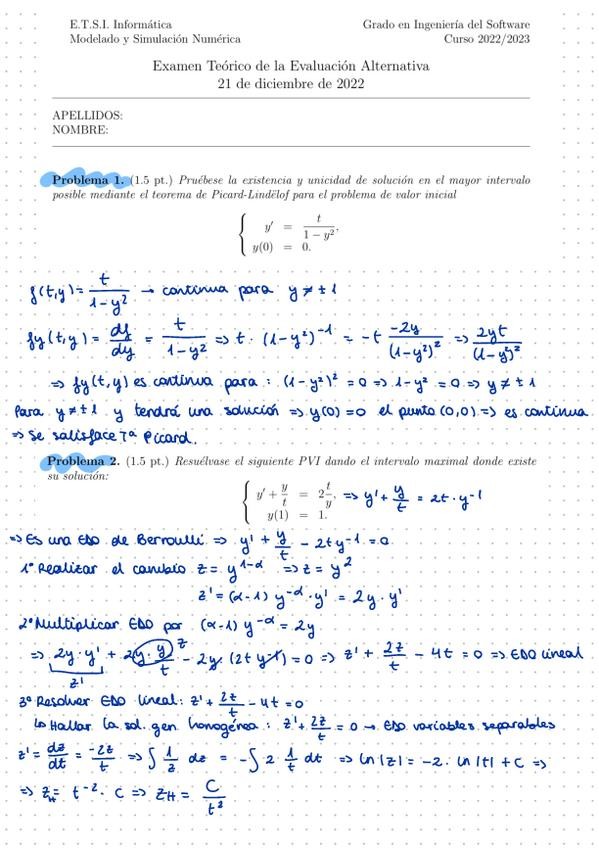 E.T.S.I. Informática Grado en Ingeniería del Software
Modelado y Simulación Numérica Curso 2022/2023
Examen Teórico de la Evaluación Alternativa
21 de diciembre de 2022
APELLIDOS:
NOMBRE:
Problema 1. (1.5 pt.) Pruébese la existencia y unicidad de solución en el mayor intervalo
posible mediante el teorema de Picard-Lindëlof para el problema de valor inicial
{ y' = t/(1 − y²),
y(0) = 0.
f(t,y) = t/(1-y²) → continua para y ≠ ±1
fy(t,y) = df/dy = t/(1-y²) => t · (1-y²)^-1 = -t (-2y)/(1-y²)² => 2yt/(1-y²)²
=> fy(t,y) es continua para : (1-y²)² = 0 => 1-y² = 0 => y ≠ ±1
Para y ≠ ±1 y tendrá una solución => y(0) = 0 el punto (0,0) => es continua.
=> Se satisface Tª Picard.
Problema 2. (1.5 pt.) Resuélvase el siguiente PVI dando el intervalo maximal donde existe
su solución:
{ y' + y/t = 2 t/y, => y' + y/t = 2t · y^-1
y(1) = 1.
=> Es una EDO de Berroulli => y' + y/t - 2ty^-1 = 0
1º Realizar el cambio z = y^(1-α) => z = y²
z' = (α-1) y^-α · y' = 2y · y'
2º Multiplicar EDO por (α-1) y^-α = 2y
=> 2y · y' + 2y · y/t - 2y · (2t y^-1) = 0 => z' + 2z/t - 4t = 0 => EDO lineal
z' z
3º Resolver EDO lineal: z' + 2z/t - 4t = 0
↳ Hallar la sol. gen. homogénea : z' + 2z/t = 0 → EDO variables separables
z' = dz/dt = -2z/t => ∫ 1/z dz = -∫ 2 · 1/t dt => ln|z| = -2 · ln|t| + C =>
=> z_H = t^-2 · C => z_H = C/t²